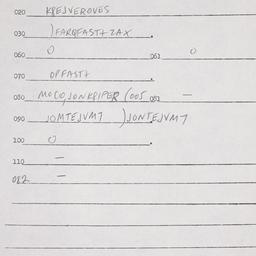 020 KREJVEROVES
030 )FAROFAST+ZAX.
060 0 061 0
070 OPFAST+
080 MOCO,JONKRIPER (005 082 —
090 JOMTEJVM7 )JONTEJVM7
100 0
110 —
082 —